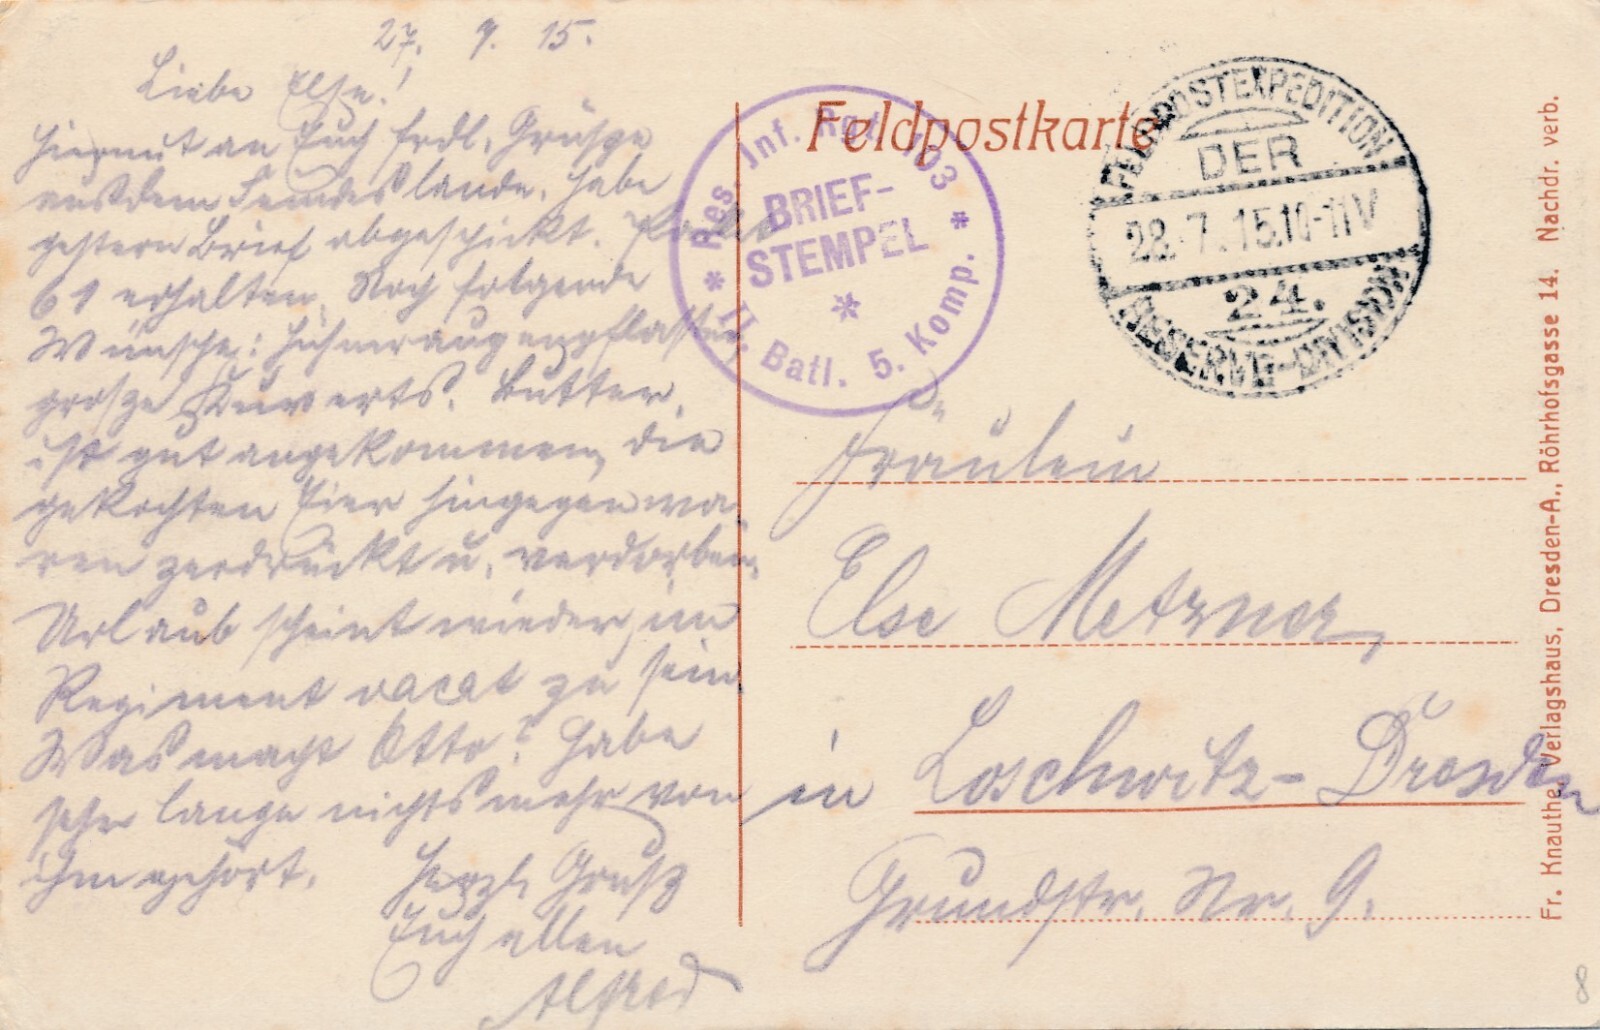 27. 7. 15.
Liebe Else!
Hiermit an Euch frdl. Grüsze
aus dem Feindeslande. Habe
gestern Brief abgeschickt. Packet
61 erhalten. Noch folgende
Wünsche: Hühneraugenpflaster,
grosze Kuwerts. Butter,
ist gut angekommen, die
gekochten Eier hingegen wa-
ren zerdrückt u. verdorben.
Urlaub scheint wieder im
Regiment vacat zu sein.
Was macht Otto? Habe
sehr lange nichts mehr von
ihm gehört.
Herzl. Grusz
Euch allen
Alfred
Feldpostkarte
Res. Inf. Rgt. 103
BRIEF-
STEMPEL
II. Batl. 5. Komp.
FELDPOSTEXPEDITION
DER
28.7.15.10-11V
24.
RESERVE-DIVISION
Fräulein
Else Metzner,
in Loschwitz-Dresden
Grundstr. Nr. 9.
Fr. Knauthe Verlagshaus, Dresden-A., Röhrhofsgasse 14. Nachdr. verb.
8